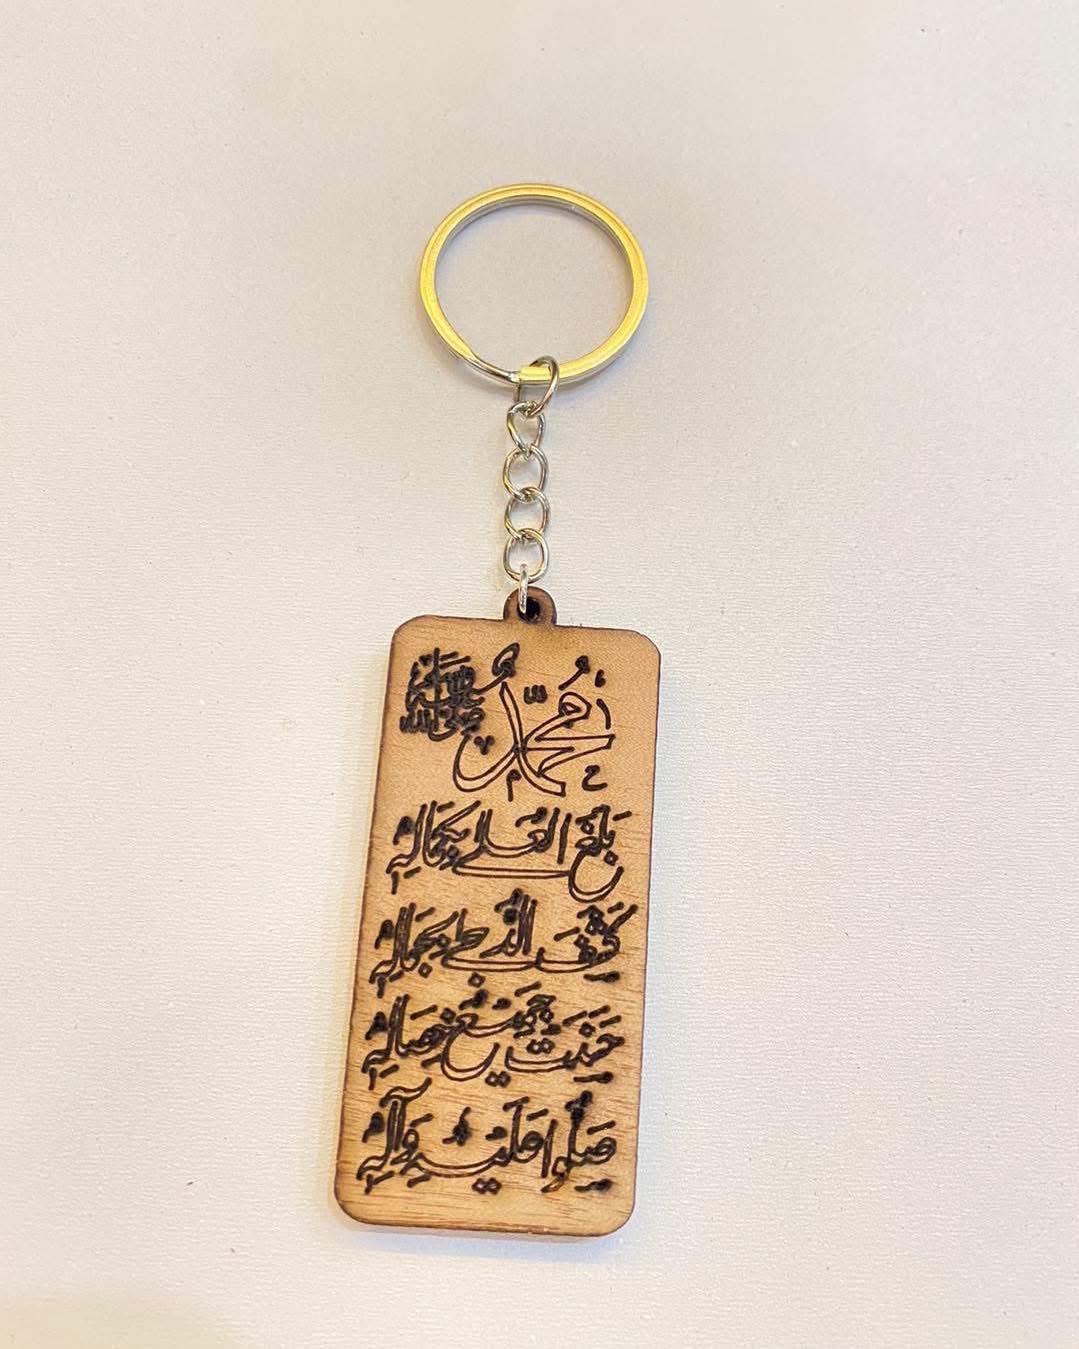 مُحَمَّد ﷺ
بَلَغَ العُلے بِكَمَالِهٖ
كَشَفَ الدُّجےٰ بِجَمَالِهٖ
حَسُنَتْ جَمِيْعُ خِصَالِهٖ
صَلُّوا عَلَيْهِ وَآلِهٖ